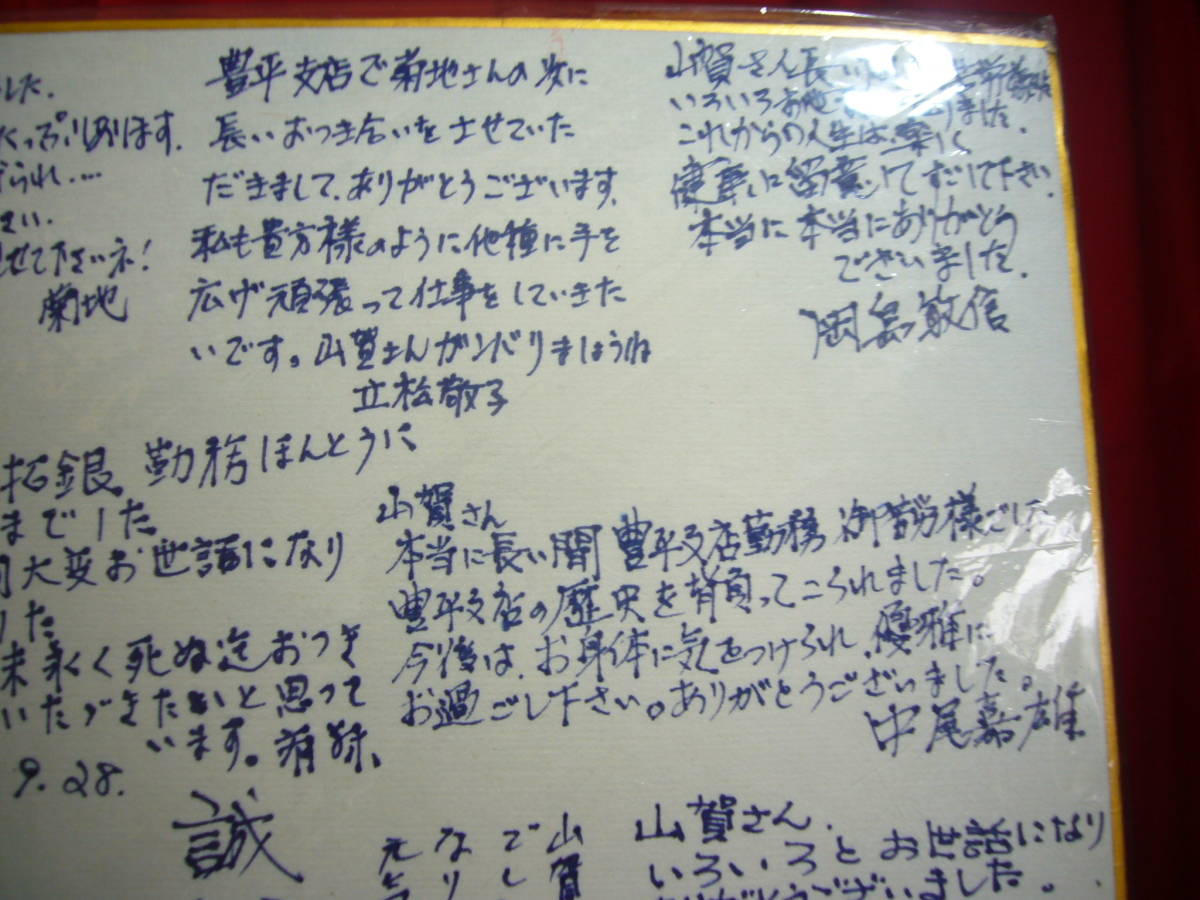 した.
たっぷりあります.
られ....
さい.
せて下さいネ!
菊地
豊平支店で菊地さんの次に
長いおつき合いをさせていた
だきまして、ありがとうございます.
私も貴方様のように他種に手を
広げ頑張って仕事をしていきた
いです。山賀さんガンバりましょうね
立松敬子
山賀さん長い
いろいろお世 ました.
これからの人生は、楽しく
健康に留意してすごして下さい.
本当に本当にありがとう
ございました.
岡島敏信
拓銀、勤務ほんとうに
までした
大変お世話になり
した
末永く死ぬ迄おつき
いただきたいと思って
います。
9.28.
山賀さん
本当に長い間豊平支店勤務御苦労様でした
豊平支店の歴史を背負ってこられました。
今後は、お身体に気をつけられ、優雅に
お過ごし下さい。ありがとうございました。
中尾嘉雄
誠
山賀
でし
なり
元
山賀さん.
いろいろとお世話になり
ありがとうございました。